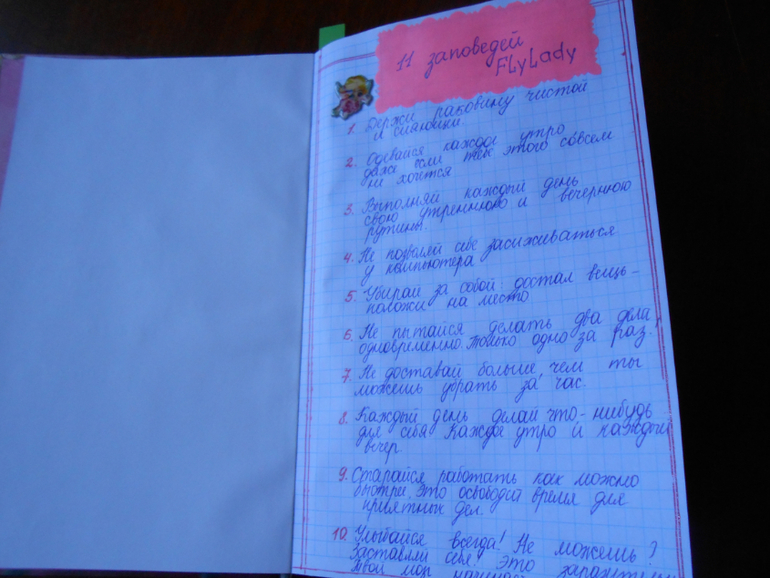 11 заповедей
FLyLady
1. Держи раковину чистой
и сияющей
2. Одевайся каждое утро
даже если тебе этого совсем
не хочется
3. Выполняй каждый день
свою утреннюю и вечернюю
рутины.
4. Не позволяй себе засиживаться
у компьютера
5. Убирай за собой: достал вещь -
положи на место
6. Не пытайся делать два дела
одновременно. Только одно за раз!
7. Не доставай больше, чем ты
можешь убрать за час.
8. Каждый день делай что-нибудь
для себя Каждое утро и каждый
вечер
9. Старайся работать как можно
быстрее, это освободит время для
приятных дел.
10. Улыбайся всегда! Не можешь?
Заставляй себя! Это
твой мозг